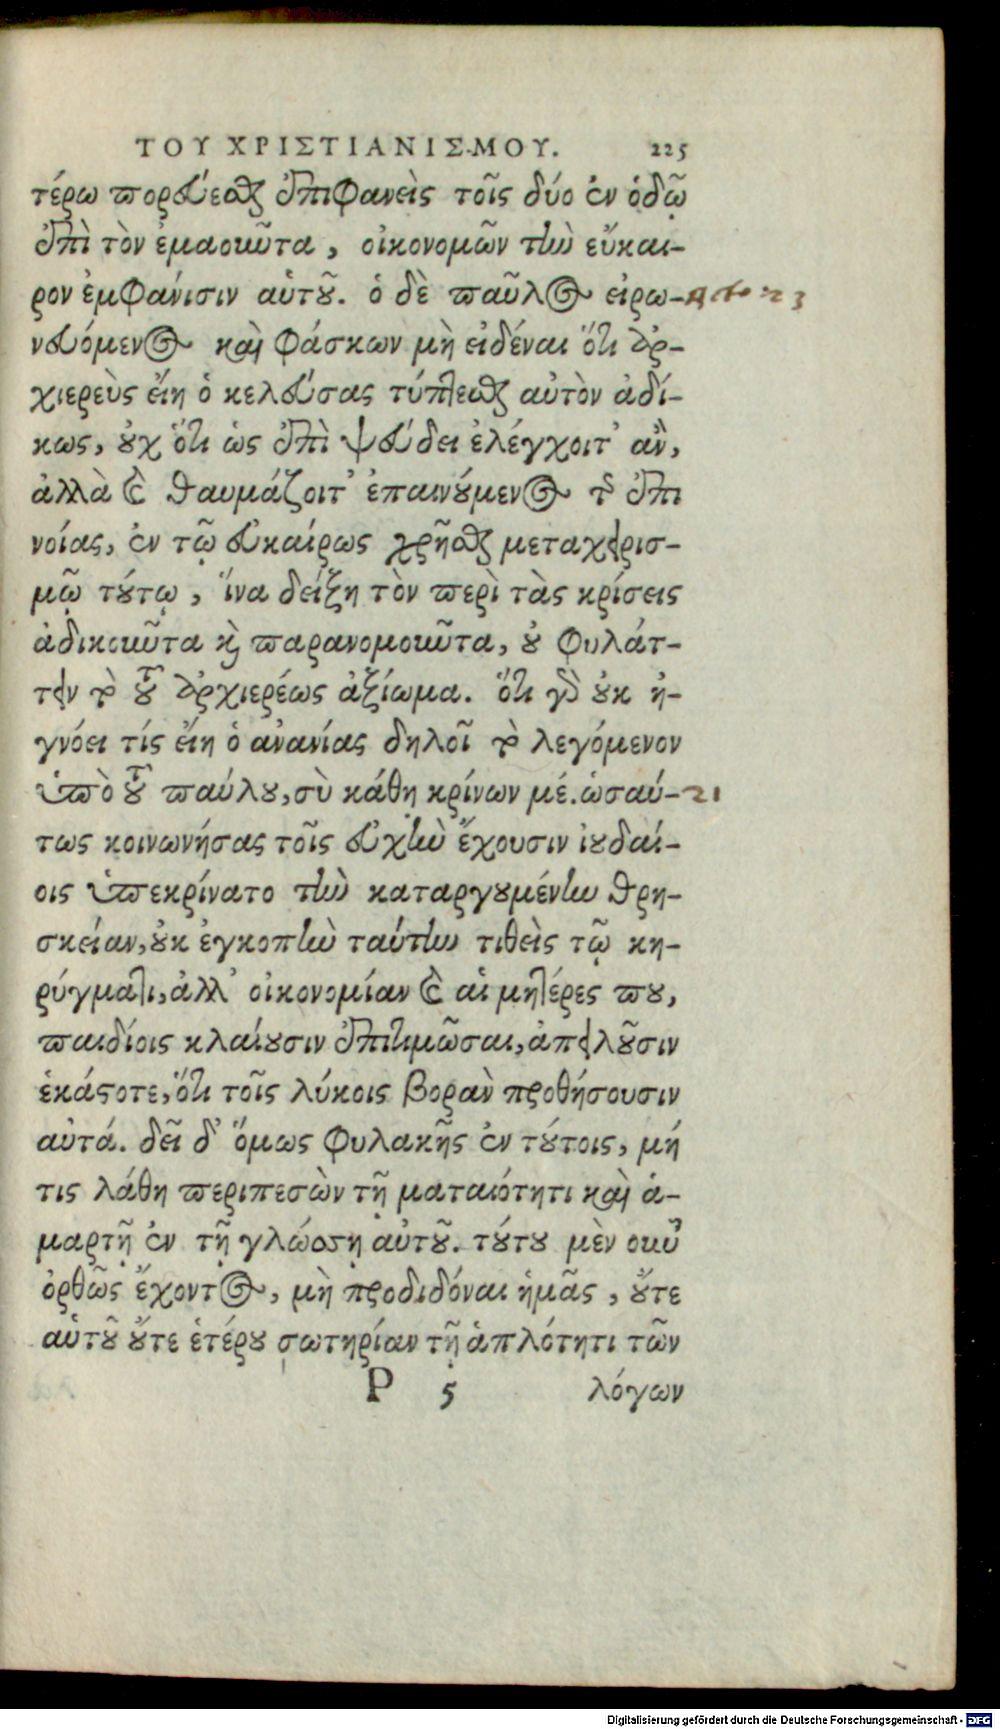 ΤΟΥ ΧΡΙΣΤΙΑΝΙΣΜΟΥ. 225
τέρω πορεύεσθαι ἐπιφανεὶς τοῖς δύο ἐν ὁδῷ
ἐπὶ τὸν ἐμαοιῶτα, οἰκονομῶν τὴν εὔκαι-
ρον ἐμφάνισιν αὑτοῦ. ὁ δὲ παῦλος εἰρω-
νευόμενος καὶ φάσκων μὴ εἰδέναι ὅτι ἀρ-
χιερεὺς εἴη ὁ κελεύσας τύπτεσθαι αὐτὸν ἀδί-
κως, οὐχ ὅτι ὡς ἐπὶ ψεύδει ἐλέγχοιτ' ἂν,
ἀλλὰ καὶ θαυμάζοιτ' ἐπαινούμενος τῆς ἐπι
νοίας, ἐν τῷ εὐκαίρως χρῆσθαι μεταχειρισ-
μῷ τούτῳ, ἵνα δείξη τὸν περὶ τὰς κρίσεις
ἀδικοῦντα καὶ παρανομοῦντα, οὐ φυλάτ-
τειν τὸ τοῦ ἀρχιερέως ἀξίωμα. ὅτι γὰρ οὐκ ἠ-
γνόει τίς εἴη ὁ ἀνανίας δηλοῖ τὸ λεγόμενον
ὑπὸ τοῦ παύλου, σὺ κάθῃ κρίνων μέ. ὡσαύ-
τως κοινωνήσας τοῖς εὐχὴν ἔχουσιν ἰουδαί-
οις ὑπεκρίνατο τὴν καταργουμένην θρη-
σκείαν, οὐκ ἐγκοπὴν ταύτην τιθεὶς τῷ κη-
ρύγματι, ἀλλ' οἰκονομίαν καὶ αἱ μητέρες που,
παιδίοις κλαίουσιν ἐπιτιμῶσαι, ἀπειλοῦσιν
ἑκάστοτε, ὅτι τοῖς λύκοις βορὰν προθήσουσιν
αὐτά. δεῖ δ' ὅμως φυλακῆς ἐν τούτοις, μή
τις λάθη περιπεσὼν τῇ ματαιότητι καὶ ἁ-
μαρτῇ ἐν τῇ γλώσσῃ αὐτοῦ. τούτου μὲν οὖν
ὀρθῶς ἔχοντος, μὴ προδιδόναι ἡμᾶς, οὔτε
αὑτοῦ οὔτε ἑτέρου σωτηρίαν τῇ ἁπλότητι τῶν
P 5 λόγων
23
21
Digitalisierung gefördert durch die Deutsche Forschungsgemeinschaft - DFG